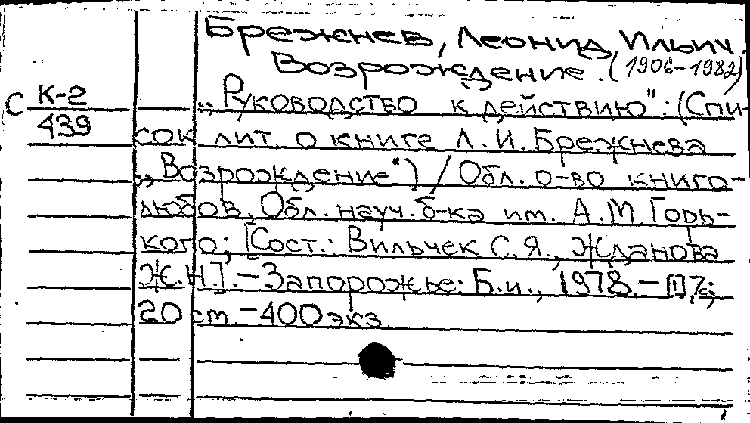 Брежнев, Леонид Ильич.
Возрождение. (1906-1982)
С К-2
439
„Руководство к действию": (Спи-
сок лит. о книге Л. И. Брежнева
„Возрождение") / Обл. о-во книго-
любов, Обл. науч. б-ка им. А.М.Горь-
кого; [Сост.: Вильчек С.Я., Жданова
Ж.Н]. - Запорожье: Б.и., 1978. -
20 см. - 400 экз